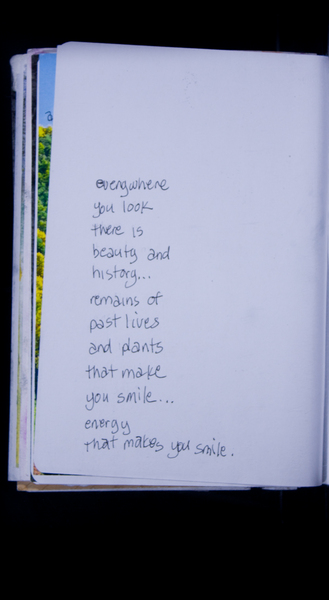 everywhere
you look
there is
beauty and
history...
remains of
past lives
and plants
that make
you smile...
energy
that makes you smile.